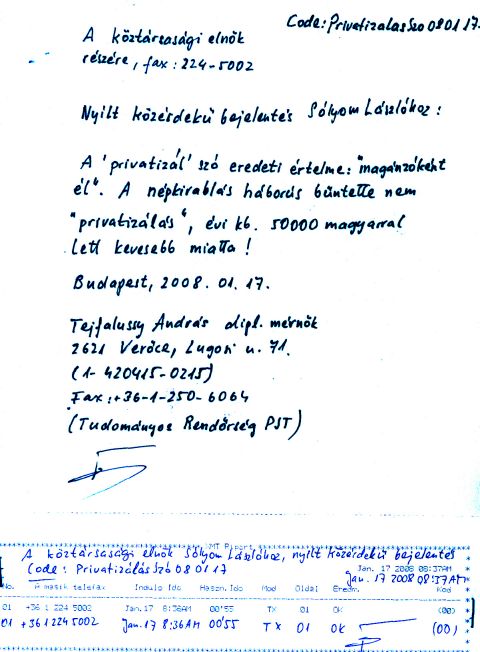 Code: PrivatizalasSzo 08 01 17.
A köztársasági elnök
részére, fax: 224-5002
Nyílt közérdekű bejelentés Sólyom Lászlóhoz:
A 'privatizál' szó eredeti értelme: "magánzóként
él". A népkirablás háborús bűntette nem
"privatizálás", évi kb. 50000 magyarral
lett kevesebb miatta!
Budapest, 2008. 01. 17.
Tejfalussy András dipl. mérnök
2621 Verőce, Lugosi u. 71.
(1-420415-0215)
Fax: +36-1-250-6064
(Tudományos Rendőrség PJT)
A köztársasági elnök Sólyom Lászlóhoz, nyílt közérdekű bejelentés
Code: Privatizálás Szó 08 01 17
Jan. 17 2008 08:37AM
Jan. 17 2008 08:37AM
No. A másik telefax Induló Idő Haszn.Idő Mód Oldal Eredm. Kód
01 +36 1 224 5002 Jan.17 8:36AM 00'55 TX 01 OK (00)
01 +36 1 224 5002 Jan.17 8:36 AM 00'55 TX 01 OK (00)